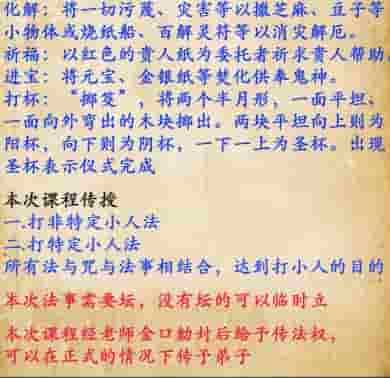 化解：将一切污蔑、灾害等以撒芝麻、豆子等
小物体或烧纸船、百解灵符等以消灾解厄。
祈福：以红色的贵人纸为委托者祈求贵人帮助。
进宝：将元宝、金银纸等焚化供奉鬼神。
打杯：“掷筊”，将两个半月形，一面平坦、
一面向外弯出的木块掷出。两块平坦向上则为
阳杯，向下则为阴杯，一下一上为圣杯。出现
圣杯表示仪式完成
本次课程传授
一.打非特定小人法
二.打特定小人法
所有法与咒与法事相结合，达到打小人的目的
本次法事需要坛，没有坛的可以临时立
本次课程经老师金口勅封后给予传法权，
可以在正式的情况下传予弟子